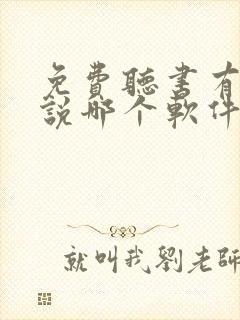 免費聽書有
說哪个軟件
就叫我劉老師